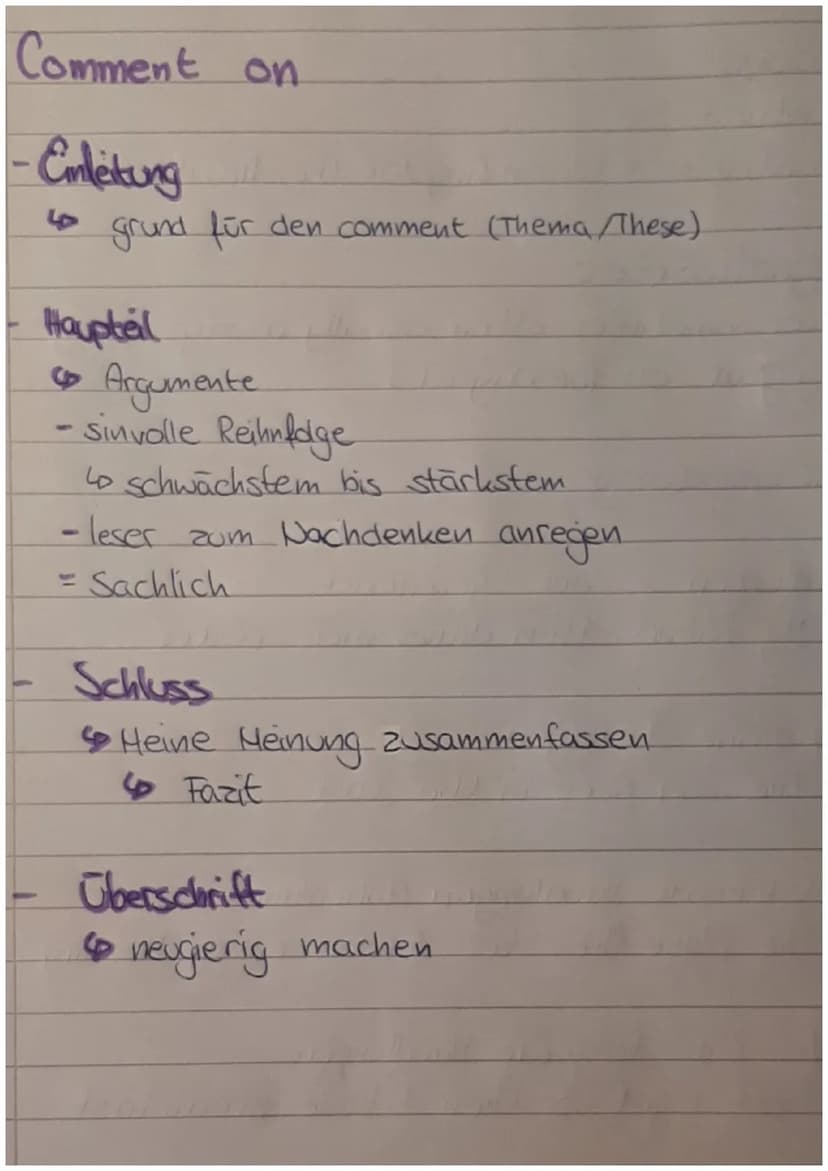 Comment on
- Einleitung
↳ grund für den comment (Thema/These)
- Haupteil
↳ Argumente
- sinvolle Reihnfolge
↳ schwächstem bis stärkstem
- leser zum Nachdenken anregen
= Sachlich
- Schluss
↳ Meine Meinung zusammenfassen
↳ Fazit
- Überschrift
↳ neugierig machen